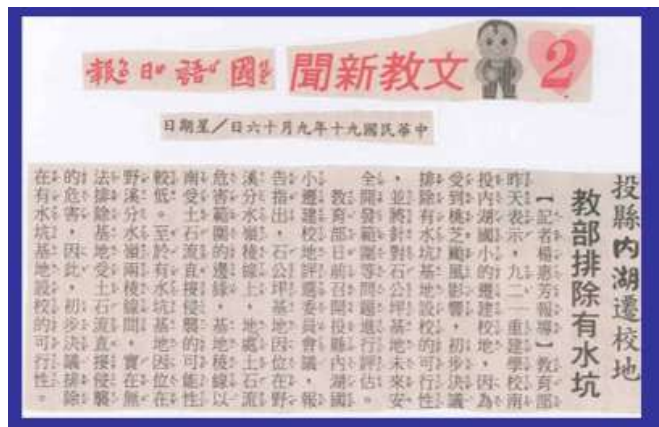 2
文教新聞
國語日報
中華民國九十年九月十六日/星期日
投縣內湖遷校地
教部排除有水坑
【記者楊惠芳報導】教育部
昨天表示,九二一重建學校南
投內湖國小的遷建校地,因為
受到桃芝颱風影響,初步決議
排除有水坑基地設校的可行性
,並將針對石公坪基地未來安
全開發範圍等問題進行評估。
教育部日前召開投縣內湖國
小遷建校地評選委員會議,報
告指出,石公坪基地因位在野
溪分水嶺稜線上,地處土石流
危害範圍的邊緣,基地稜線以
南受土石流直接侵襲的可能性
較低。至於有水坑基地因位在
野溪分水嶺兩稜線間,實在無
法排除基地受土石流直接侵襲
的危害,因此,初步決議排除
在有水坑基地設校的可行性。